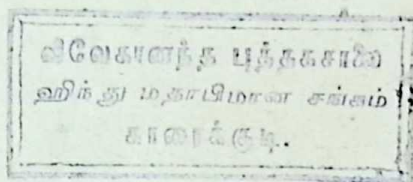 விவேகானந்த புத்தகசாலை
ஹிந்து மதாபிமான சங்கம்
காரைக்குடி..